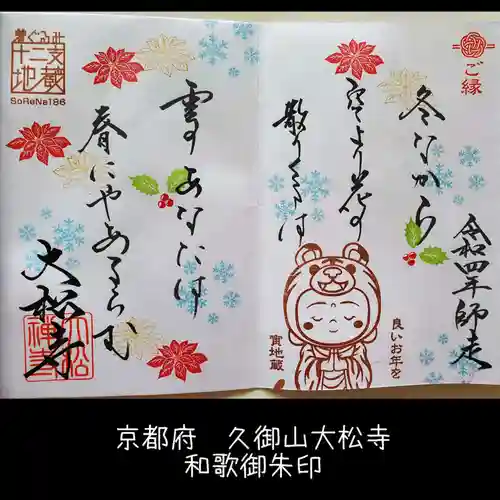 ご縁
冬ながら
空より花の
散りくるは
令和四年師走
良いお年を
寅地蔵
夢ぐるみ
十二支
地蔵
SoReNa186
雲のあなたは
春にやあるらむ
大松寺
京都府　久御山大松寺
和歌御朱印